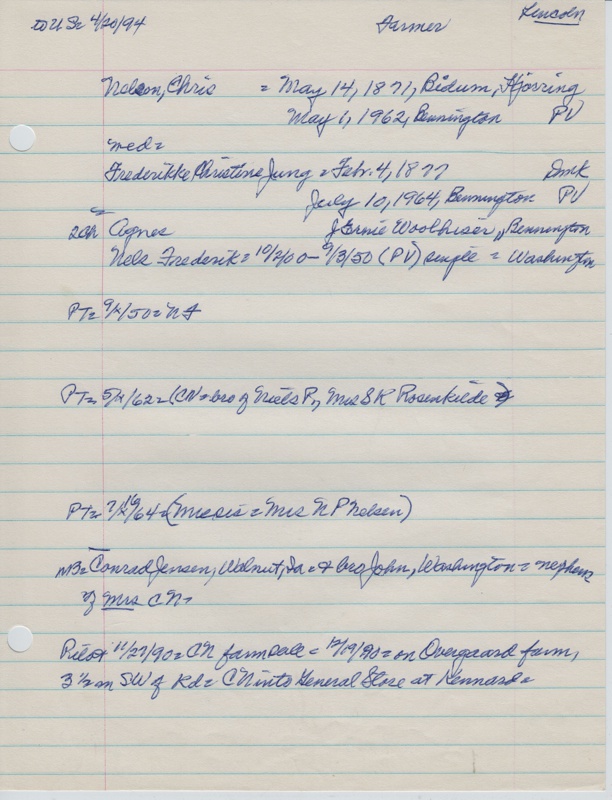 to US= 4/20/94 Farmer Lincoln
Nelson, Chris = May 14, 1871, Bidum, Hjorring
May 1, 1962, Bennington PV
med=
Frederikke Christine Jung = Febr. 4, 1877 Dmk
July 10, 1964, Bennington PV
=
2ch Agnes / Ernie Woolhiser, Bennington
Nels Frederik = 10/2/00 - 9/3/50 (PV) single = Washington
PT= 9/ /50 = N F
PT= 5/ /62 = (CN = bro of Niels P, Mrs S R Rosenkilde
PT= 7/16/64 = ( = Mrs N P Nelsen)
NB= Conrad Jensen, Walnut, Ia = & bro John, Washington = nephews
of Mrs CN=
Pilot 11/27/90 = CN farm sale = 12/19/90 = on Overgaard farm,
3 1/2 m SW of Kd = CN into General Store at Kennard=